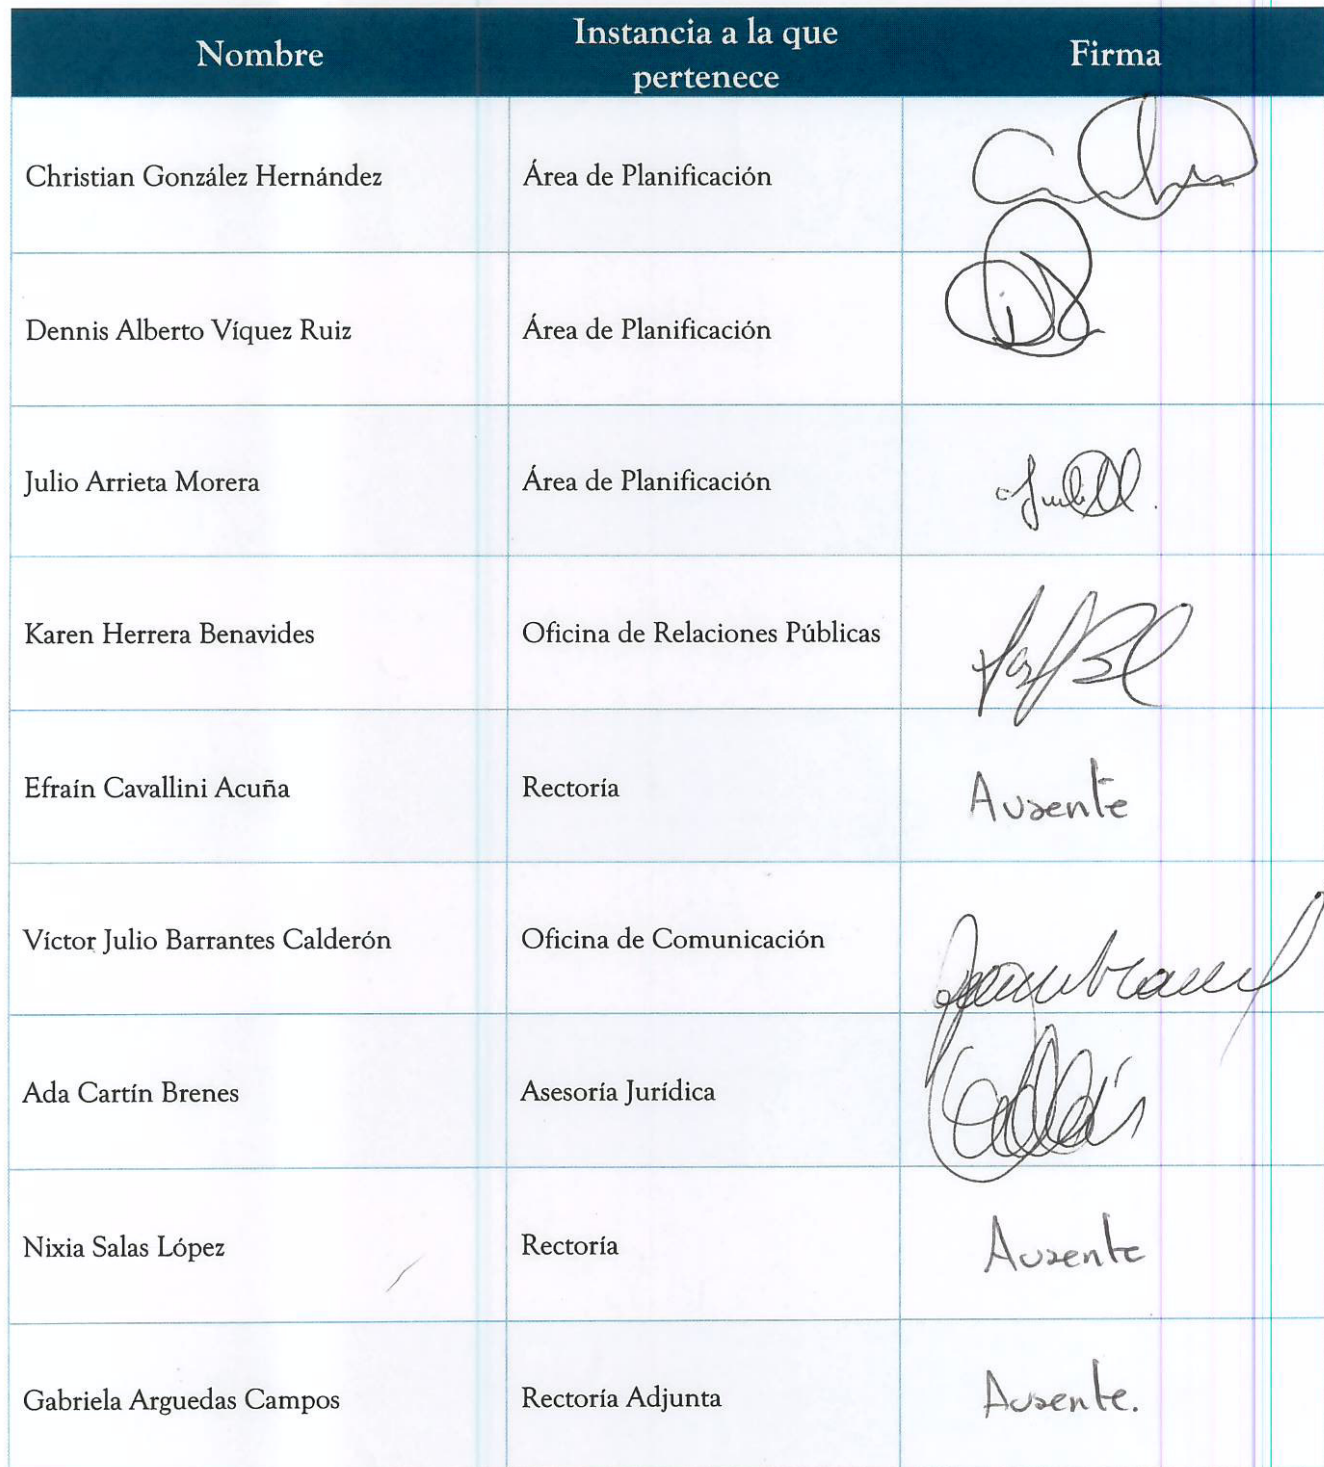 Nombre
Instancia a la que
pertenece
Firma
Christian González Hernández
Área de Planificación
Dennis Alberto Víquez Ruiz
Área de Planificación
Julio Arrieta Morera
Área de Planificación
Karen Herrera Benavides
Oficina de Relaciones Públicas
Efraín Cavallini Acuña
Rectoría
Ausente
Víctor Julio Barrantes Calderón
Oficina de Comunicación
Ada Cartín Brenes
Asesoría Jurídica
Nixia Salas López
Rectoría
Ausente
Gabriela Arguedas Campos
Rectoría Adjunta
Ausente.